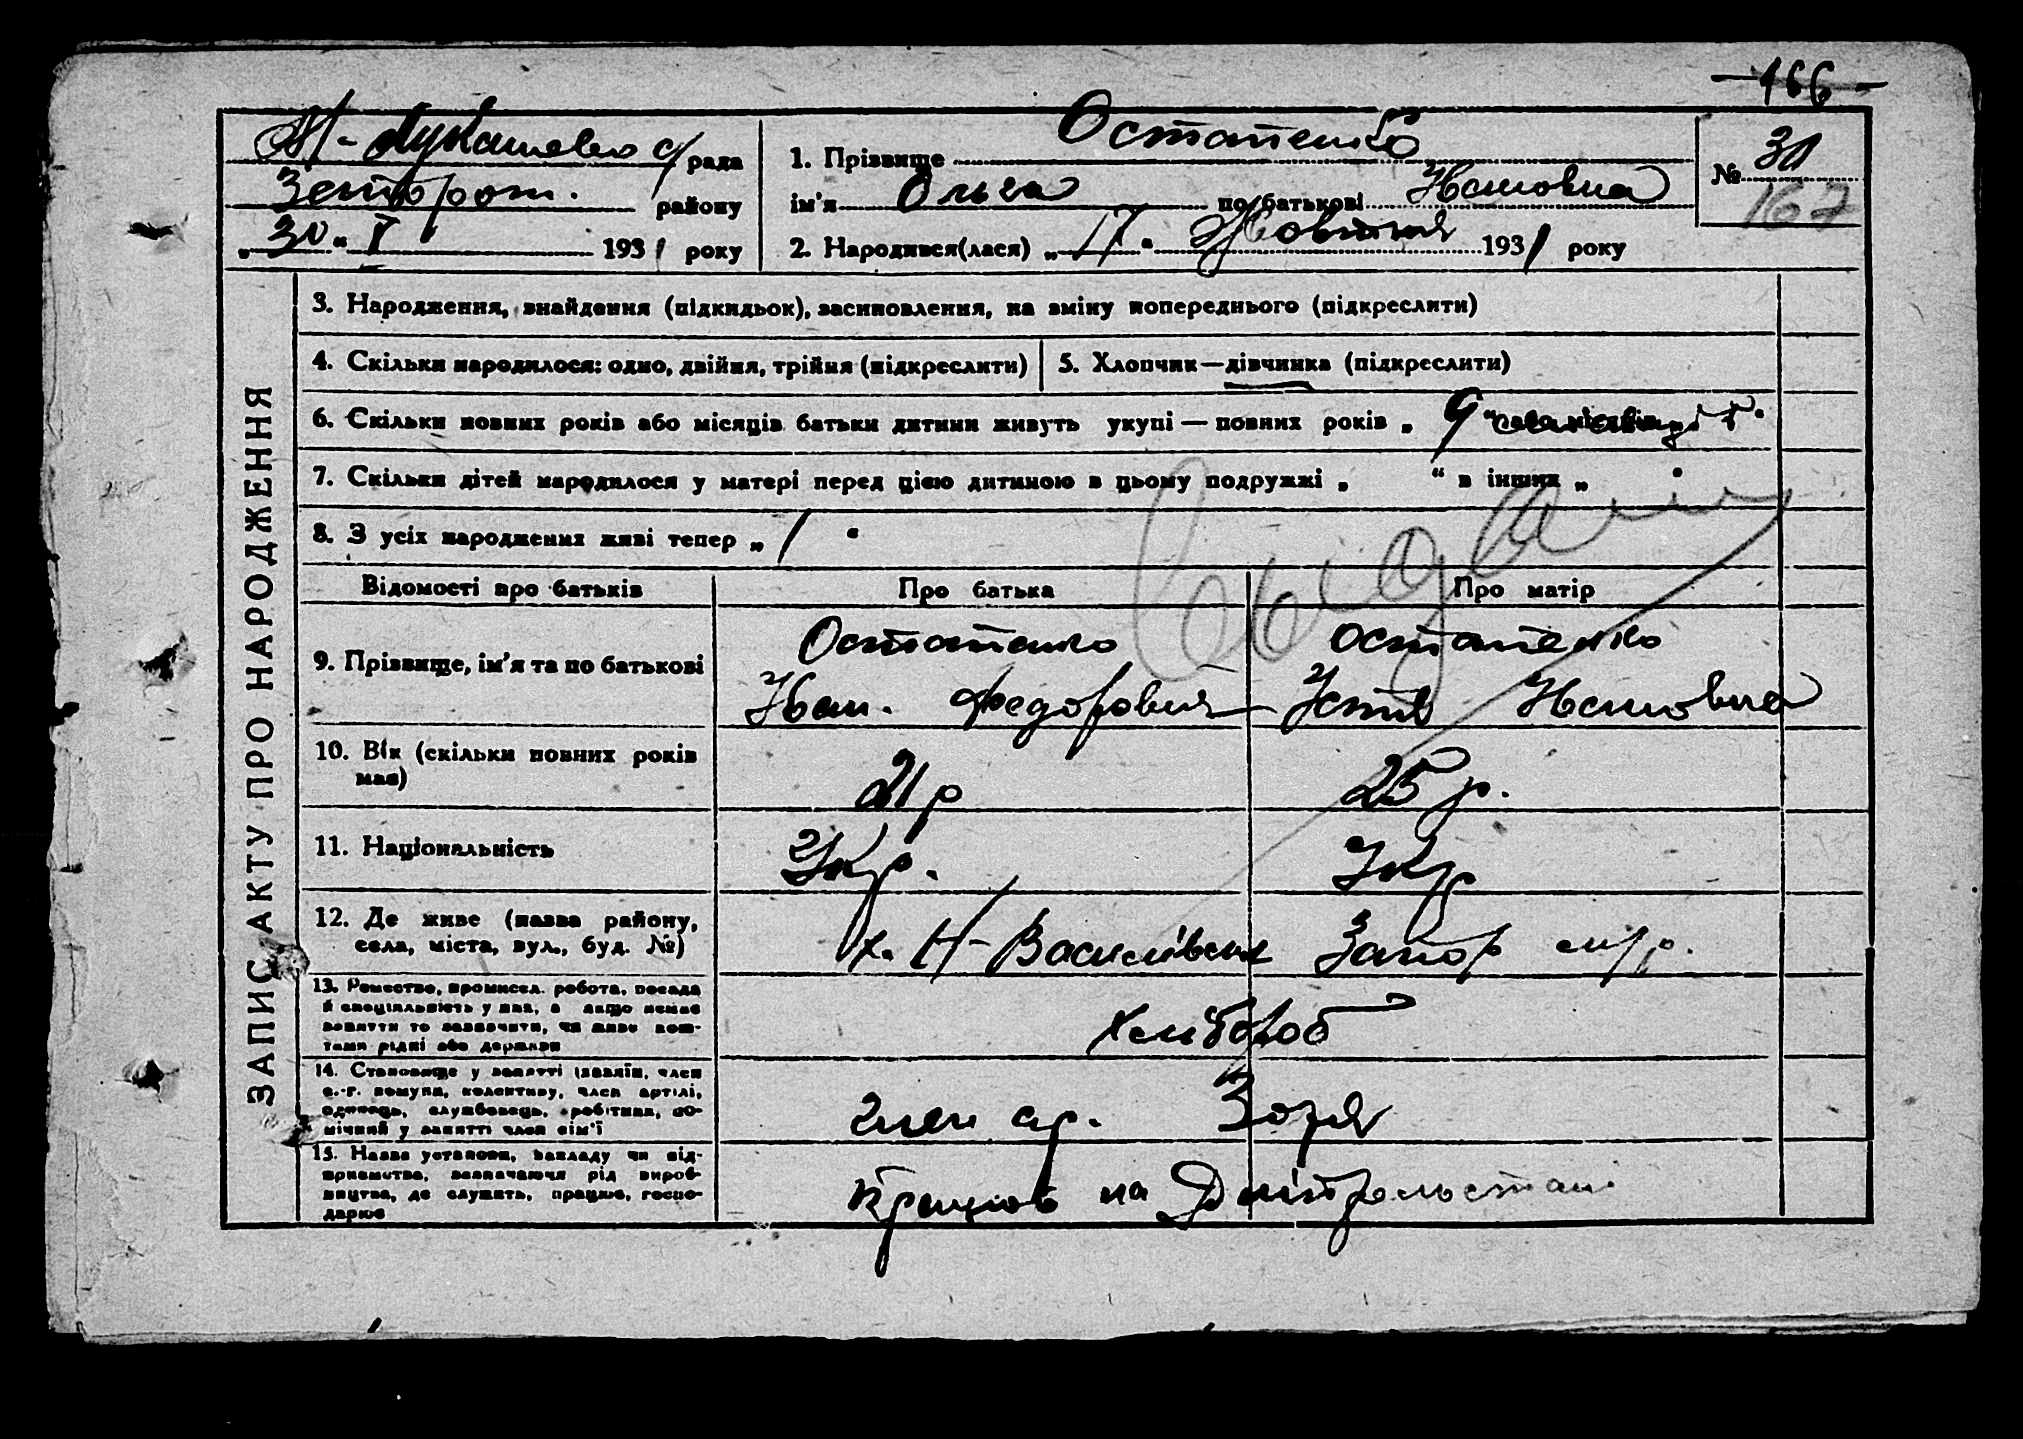 - 166 -
рада
району
„ 30 “ I 1931 року
1. Прізвище Остапенко
ім'я Ольга по батькові Ивановна
2. Народився(лася) „ 17 “ Жовтня 1931 року
№ 30
167
ЗАПИС АКТУ ПРО НАРОДЖЕННЯ
3. Народження, знайдення (підкидьок), засиновлення, на зміну попереднього (підкреслити)
4. Скільки народилося: одно, двійня, трійня (підкреслити)
5. Хлопчик—дівчинка (підкреслити)
6. Скільки повних років або місяців батьки дитини живуть укупі — повних років „ 9
7. Скільки дітей народилося у матері перед цією дитиною в цьому подружжі „ “ в інших „
8. З усіх народжених живі тепер „ 1 “
Відомості про батьків Про батька Про матір
9. Прізвище, ім'я та по батькові
Остапенко Остапенко
Иван. Федорович Ивановна
10. Вік (скільки повних років має)
21 р 25 р.
11. Національність
Укр. Укр
12. Де живе (назва району, села, міста, вул., буд. №)
х. Н-Василівськ Запор
13. Ремество, промисел. робота, посада й спеціальність у них, а якщо немає заняття то зазначити, чи живе коштами рідні або держави
хлібороб
14. Становище у занятті (хазяїн, член с.-г. комуни, колективу, член артілі, одинець, службовець, робітник, помічний у занятті член сім'ї
член ар. Зоря
15. Назва установи, закладу чи підприємства, зазначаючи рід виробництва, де служить, працює, господарює
на